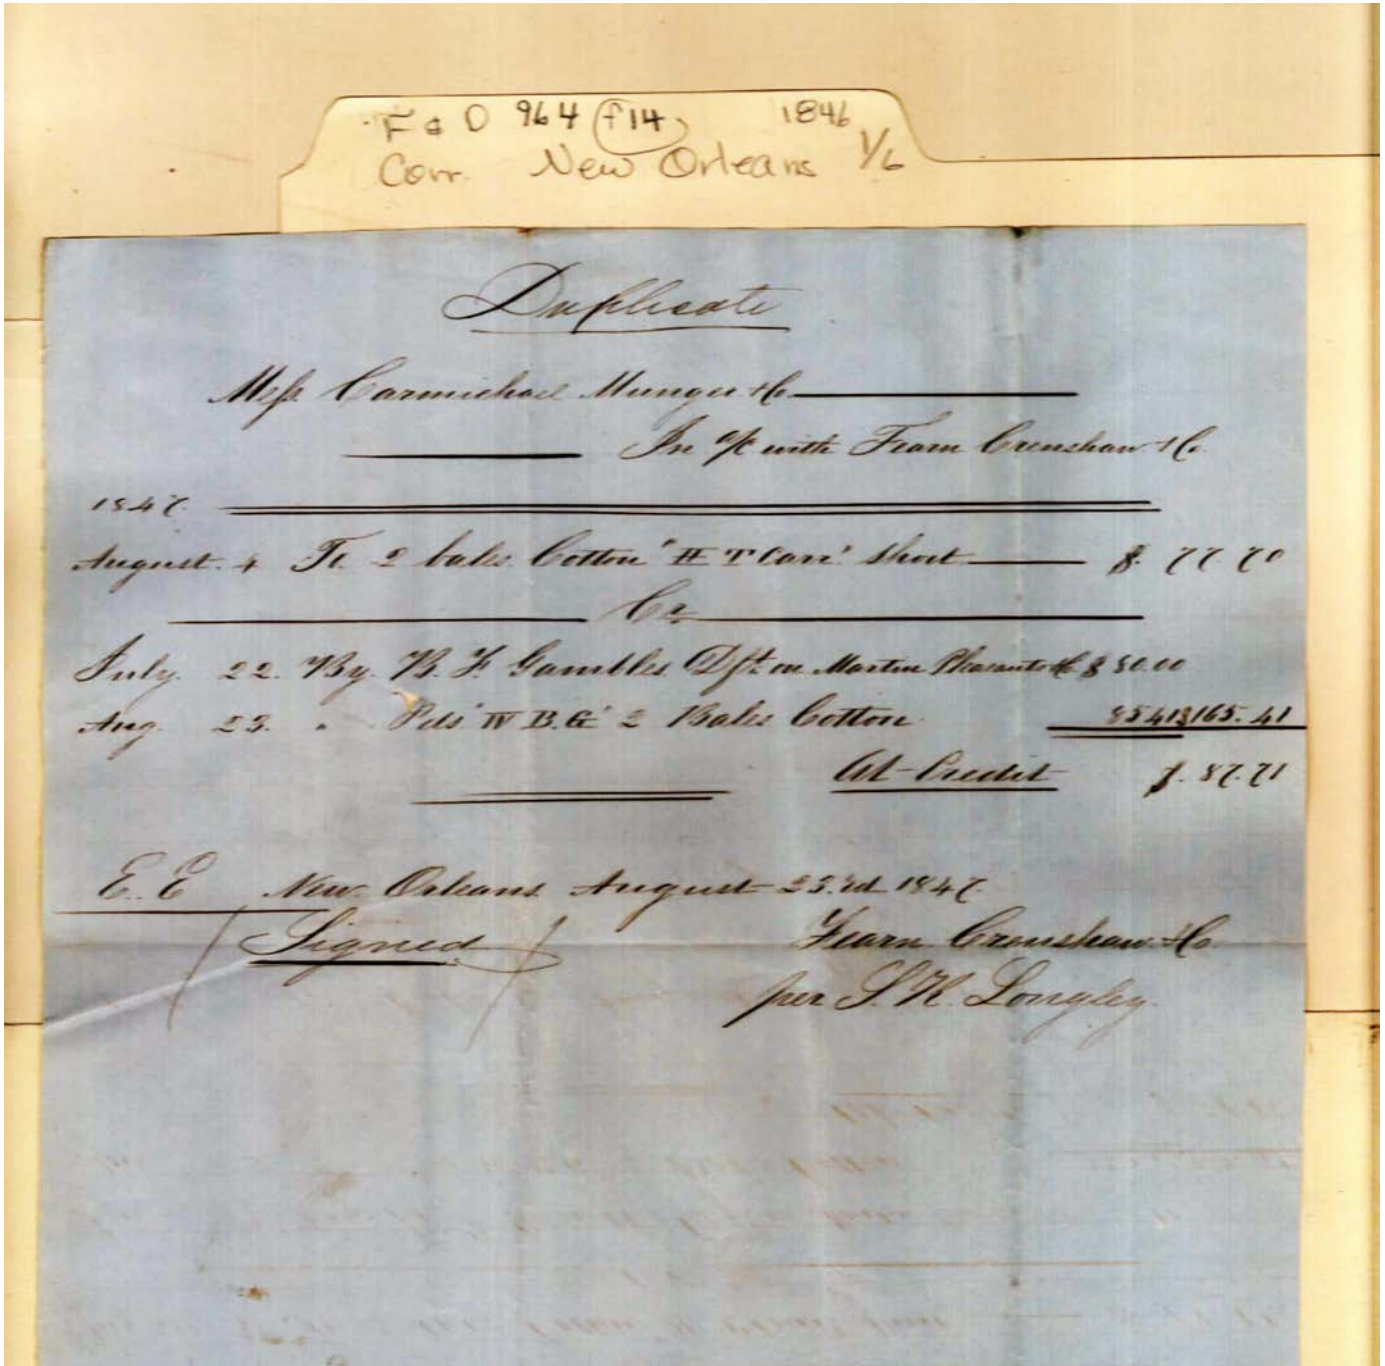 F & D 964 (f14) 1846
Corr. New Orleans 1/6
Duplicate
Mess. Carmichael Munger & Co.
In a/c with Fearn Crenshaw & Co.
1847.
August. 4 To. 2 bales Cotton "H T Carr" short $. 77.70
Cr
July. 22. By. B. F. Gambles Dft. on Martin Pleasants & Co $ 80.00
Aug 23. " Pds W B. G 2 Bales Cotton 85.41 $165.41
At Credit $. 87.71
E. E New Orleans August 23.rd 1847.
(Signed) Fearn Crenshaw & Co
per S. K. Longley.